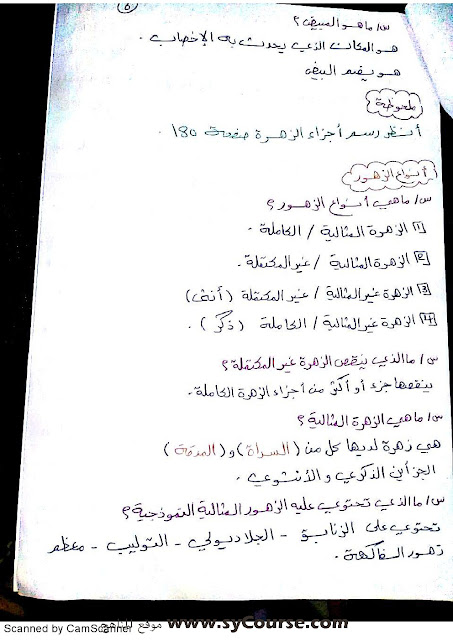 (٥)
س/ ما هو المبيض؟
هو المكان الذي يحدث به الإخصاب.
هو يضم البيض
ملحوظة
أنظر رسم أجزاء الزهرة صفحة 180.
أنواع الزهور
س/ ما هي أنواع الزهور؟
[1] الزهرة المثالية / الكاملة.
[2] الزهرة المثالية / غير المكتملة.
[3] الزهرة غير المثالية / غير المكتملة (أنثى)
[4] الزهرة غير المثالية / الكاملة (ذكر).
س/ ما الذي ينقص الزهرة غير المكتملة؟
ينقصها جزء أو أكثر من أجزاء الزهرة الكاملة.
س/ ما هي الزهرة المثالية؟
هي زهرة لديها كل من (السداة) و (المدقة)
الجزأين الذكري والأنثوي.
س/ ما الذي تحتوي عليه الزهور المثالية النموذجية؟
تحتوي على الزنابق - الجلاديولي - التوليب - معظم
زهور الفاكهة.
موقع المناهج www.syCourse.com
Scanned by CamScanner